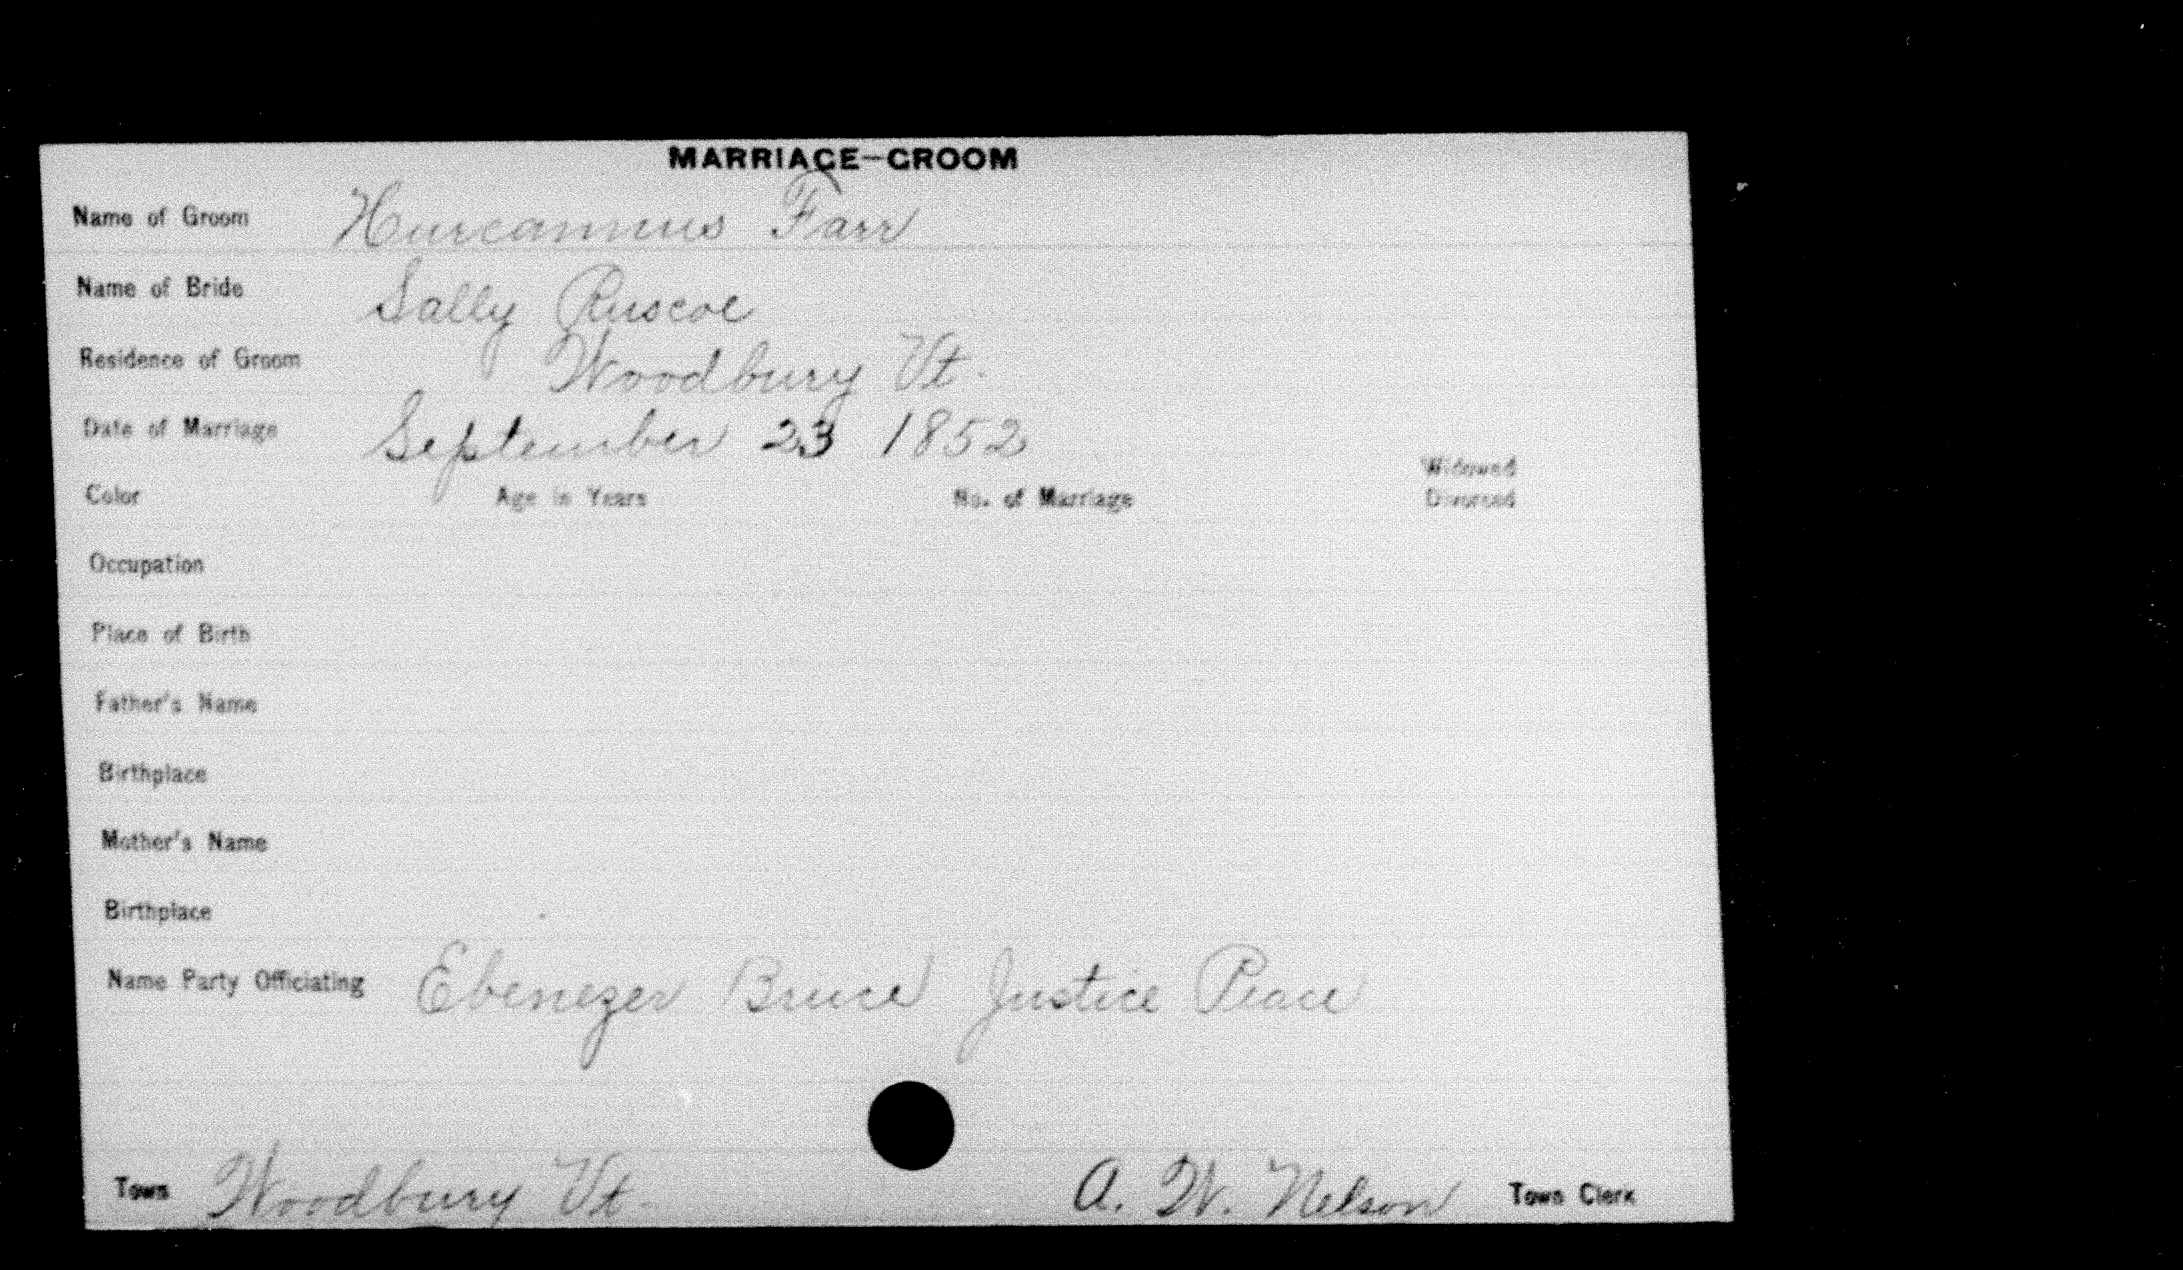 MARRIAGE—GROOM
Name of Groom Hurcannus Farr
Name of Bride Sally Ruscoe
Residence of Groom Woodbury Vt.
Date of Marriage September 23 1852
Widowed
Color Age in Years No. of Marriage Divorced
Occupation
Place of Birth
Father's Name
Birthplace
Mother's Name
Birthplace
Name Party Officiating Ebenezer Bruce Justice Peace
Town Woodbury Vt. A. W. Nelson Town Clerk